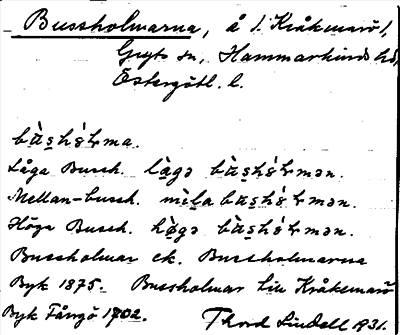 Bussholmarna, å 1. Kråkemarö 1,
Gryts sn, Hammarkinds hd,
Östergötl. l.
bùs̱hólma.
Låga Bussh. làgə bùs̱hólmən.
Mellan-bussh. mèla bùs̱hólmən.
Höga Bussh. hø̀gə bùs̱hólmən.
Bussholmar ek. Bussholmarna
Byk 1875. Bussholmar Lin Kråkemarö
Byk Fångö 1702.
Thord Lindell 1931.